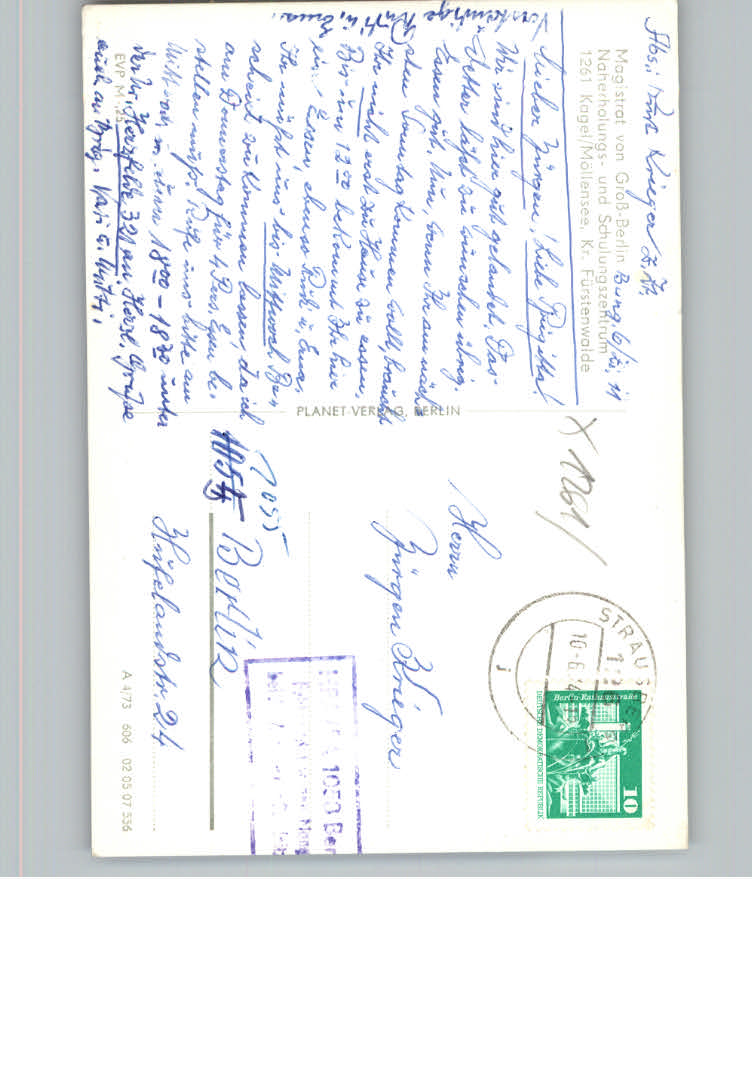 Abs.: Kurt Krieger z. Zt.
Magistrat von Groß-Berlin Bung. 6/Zi. 11
Naherholungs- und Schulungszentrum
1261 Kagel/Möllensee, Kr. Fürstenwalde
Lieber Jürgen, liebe Brigitta!
Wir sind hier gut gelandet. Das
Wetter läßt zu wünschen übrig.
Essen gut. Nun, wenn Ihr am näch-
sten Sonntag kommen wollt, braucht
Ihr nicht erst zu Hause zu essen.
Bis um 13 00 bekommt Ihr hier
ein Essen, ebenso Ruth u. Oma.
Ihr müßt uns bis Mittwoch Be-
scheid zukommen lassen, da ich
am Donnerstag für 4 Pers. Essen be-
stellen muß. Ruft uns bitte am
Mittwoch m. einen 18 00 - 18 30 unter
der Nr. Herzfelde 321 an. Herzl. Grüße
auch an Brig. Vati u. Mutti.
EVP M -,25
PLANET-VERLAG, BERLIN
X 1261
Herrn
Jürgen Krieger
1055
1054 Berlin
Hufelandstr. 24
STRAUSBE
10-6.74
j
Berlin-Rathausstraße
DEUTSCHE DEMOKRATISCHE REPUBLIK
10
1050 Ber
A 4/73 606 02 05 07 556